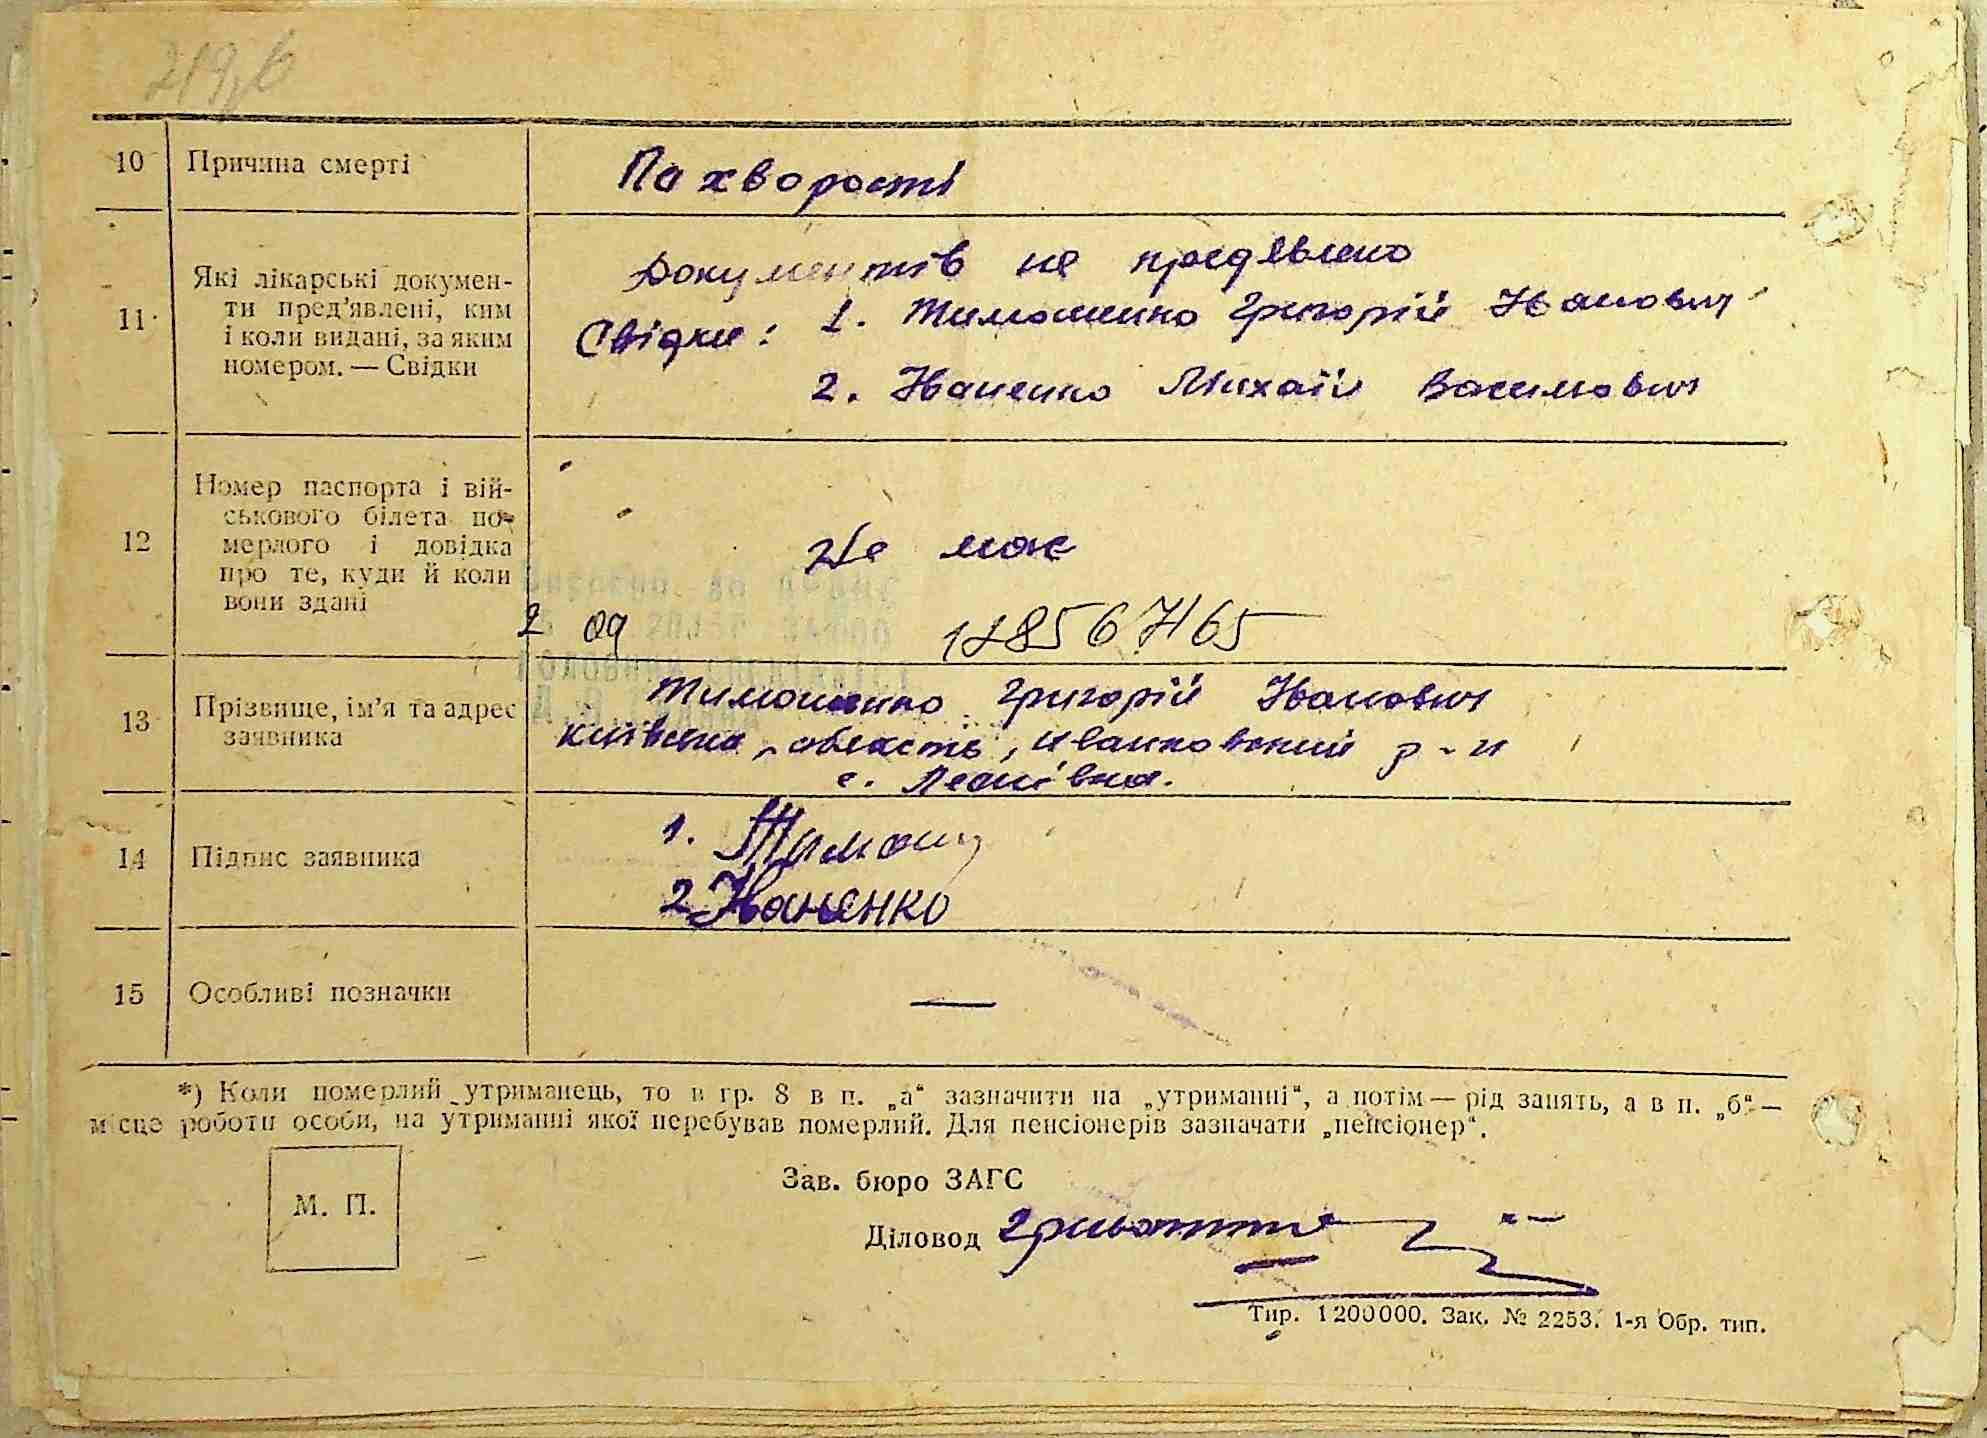 219
10 Причина смерті По хворості
11 Які лікарські докумен-
ти пред’явлені, ким
і коли видані, за яким
номером. — Свідки
Документів не предявлено
Свідки: 1. Тимошенко Григорій Іванович
2. Іваненко Михаій Васильович
12 Номер паспорта і вій-
ськового білета по-
мерлого і довідка
про те, куди й коли
вони здані
Не має
13 Прізвище, ім’я та адрес
заявника
Тимошенко Григорій Іванович
Київська область, Иванковский р-н
с. Леонівка.
14 Підпис заявника
1. Тимош
2 Іваненко
15 Особливі позначки —
*) Коли померлий утриманець, то в гр. 8 в п. „а“ зазначити на „утриманні“, а потім — рід занять, а в п. „б“ —
місце роботи особи, на утриманні якої перебував померлий. Для пенсіонерів зазначати „пенсіонер“.
М. П.
Зав. бюро ЗАГС
Діловод
Тир. 1200000. Зак. № 2253. 1-я Обр. тип.